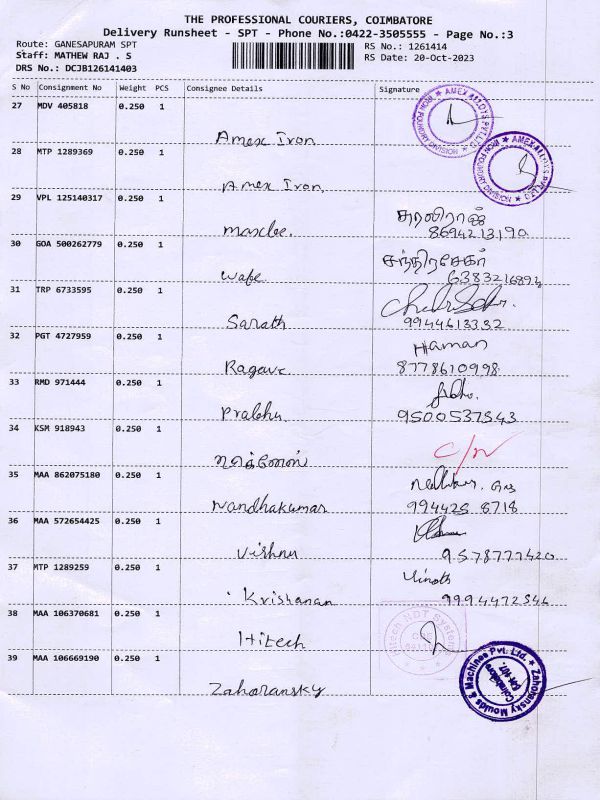 THE PROFESSIONAL COURIERS, COIMBATORE
Delivery Runsheet - SPT - Phone No.:0422-3505555 - Page No.:3
Route: GANESAPURAM SPT
RS No.: 1261414
Staff: MATHEW RAJ . S
RS Date: 20-Oct-2023
DRS No.: DCJB126141403
S No Consignment No Weight PCS Consignee Details Signature
27 MDV 405818 0.250 1
Amex Iron
28 MTP 1289369 0.250 1
Amex Iron
29 VPL 125140317 0.250 1
8694213190
30 GOA 500262779 0.250 1
சந்திரசேகர்
wafe
31 TRP 6733595 0.250 1
Sarath 9944613332
32 PGT 4727959 0.250 1
Haman
Ragave 8778610998
33 RMD 971444 0.250 1
Prabhu 9500537543
34 KSM 918943 0.250 1
C/N
35 MAA 862075180 0.250 1
Nandhakumar 994425 8718
36 MAA 572654425 0.250 1
Vishnu 9578777420
37 MTP 1289259 0.250 1
Vinoth
Krishanan 9994472544
38 MAA 106370681 0.250 1
Hitech NDT Systems
Hitech
39 MAA 106669190 0.250 1
Zahoransky Moulds & Machines Pvt. Ltd.
Coimbatore
641 107.
Zahoransky